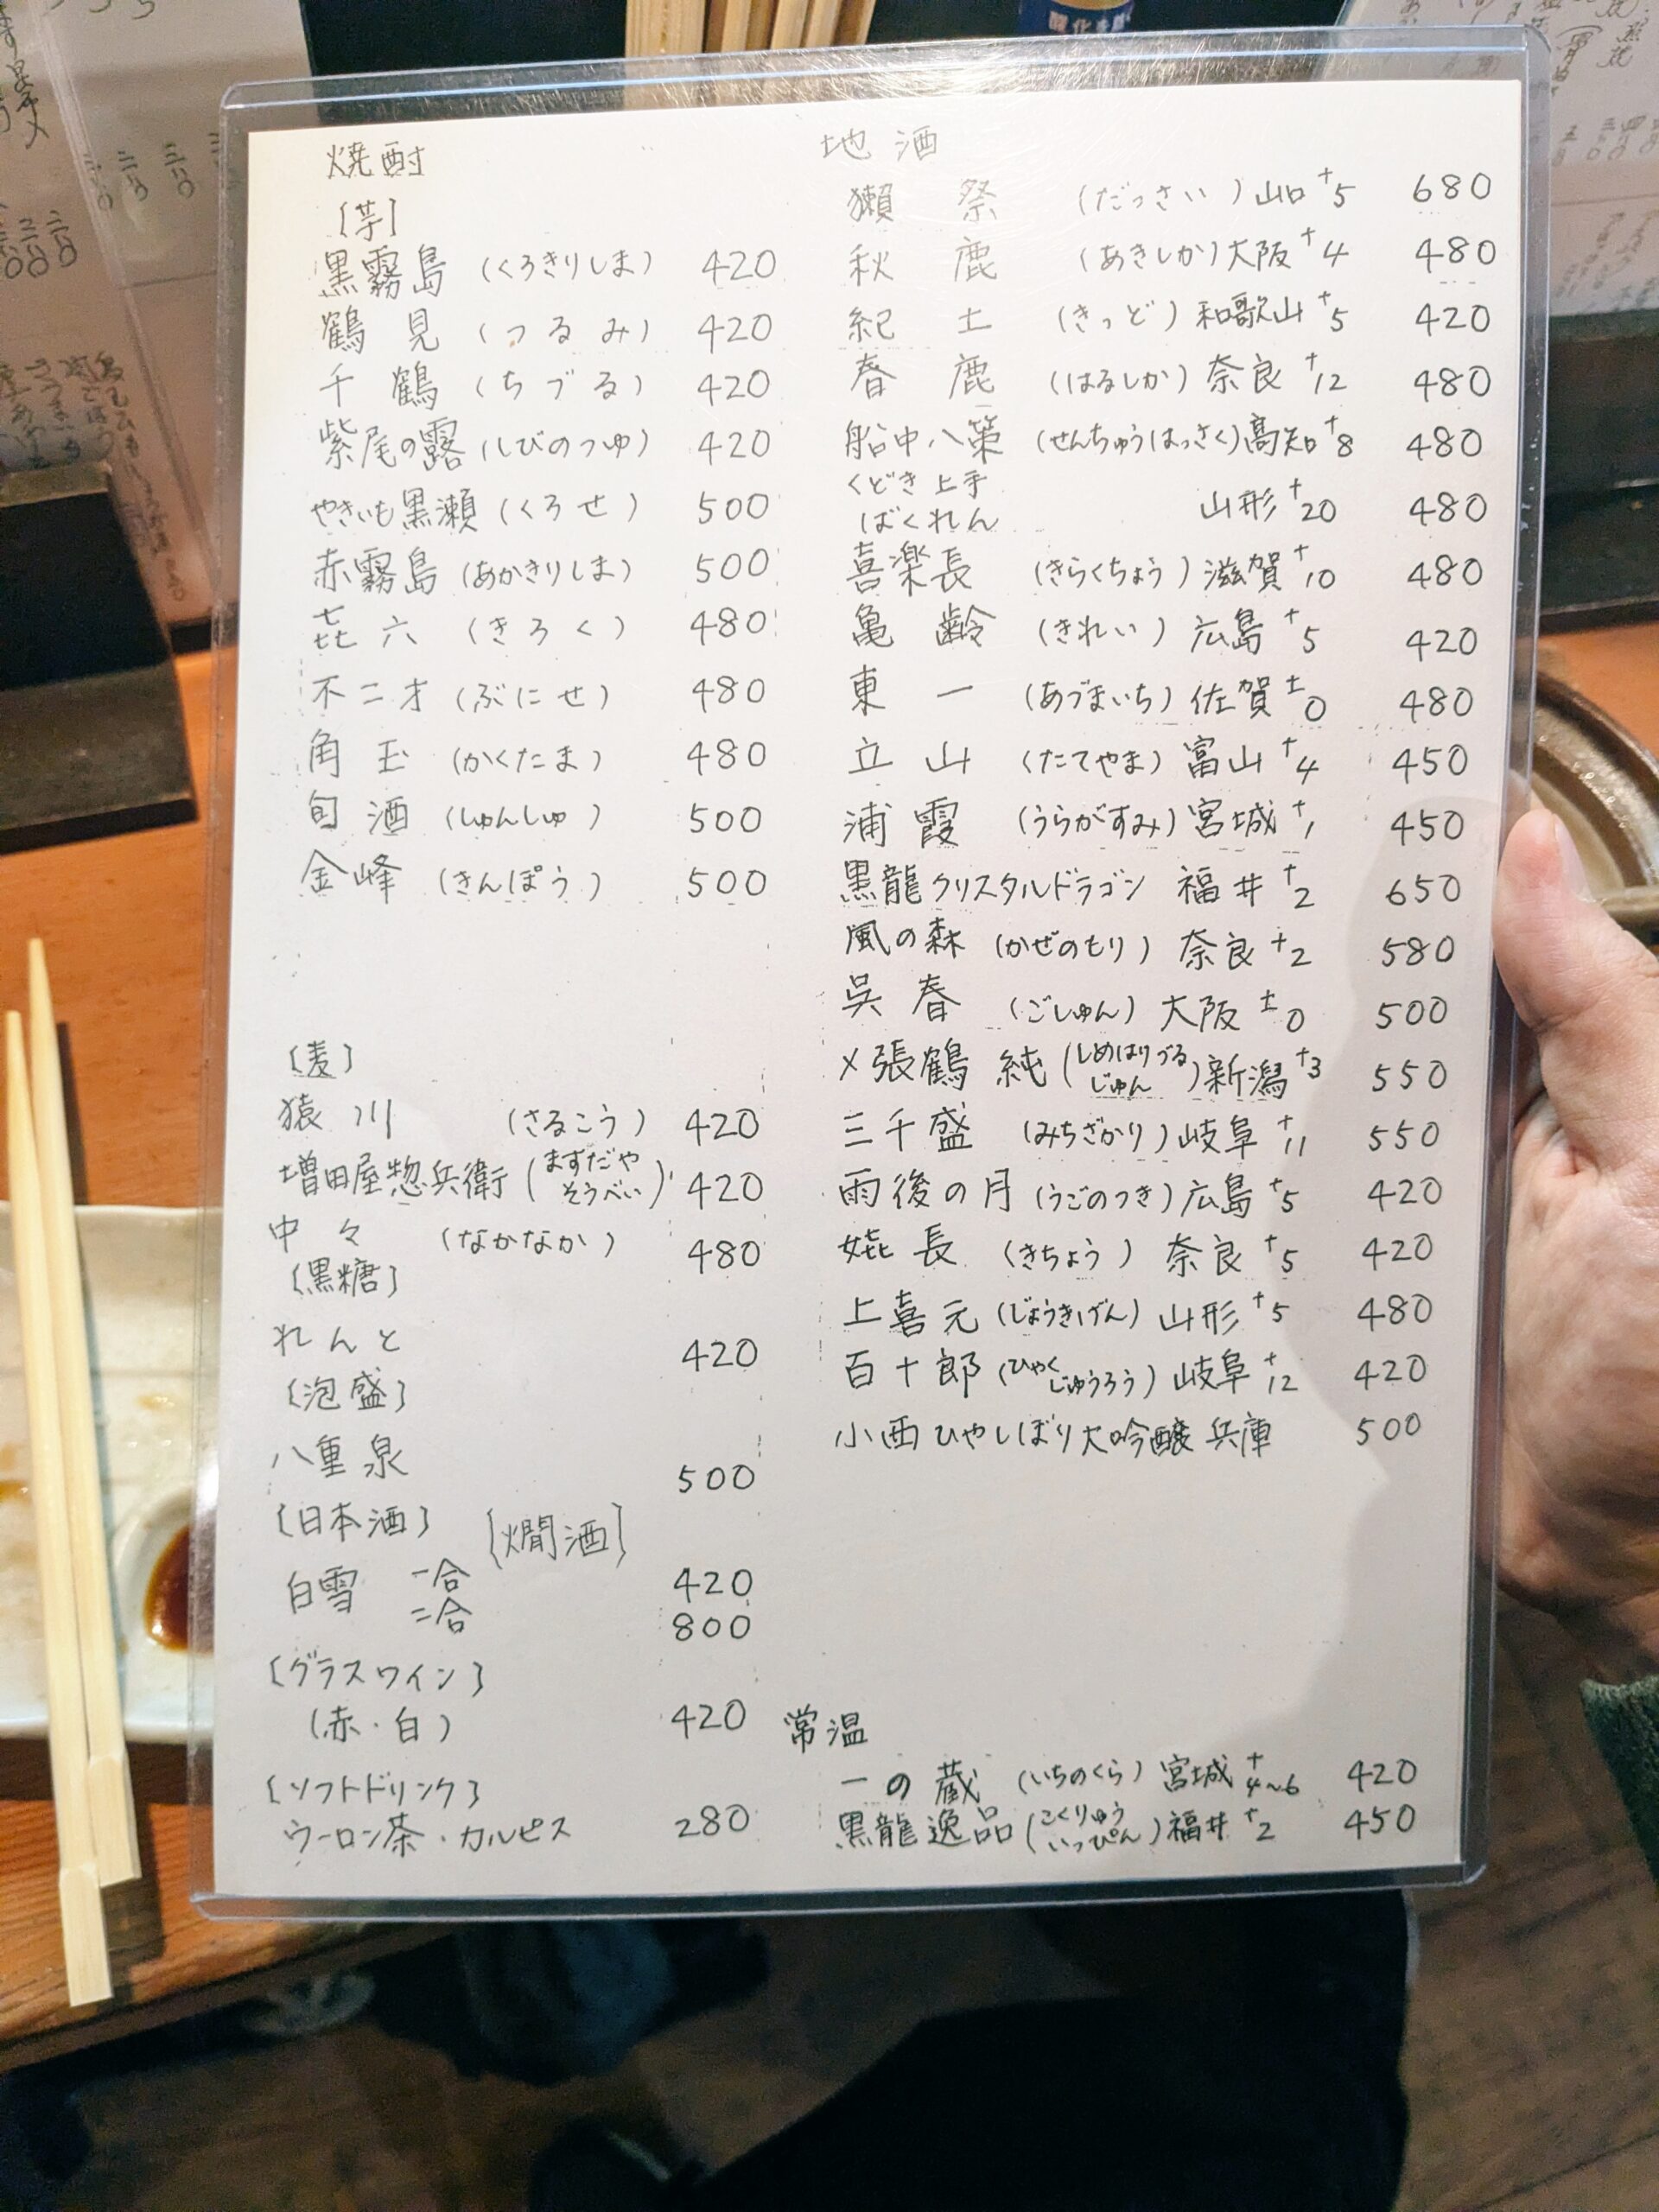 焼酎
[芋]
黒霧島 (くろきりしま) 420
鶴見 (つるみ) 420
千鶴 (ちづる) 420
紫尾の露 (しびのつゆ) 420
やきいも黒瀬 (くろせ) 500
赤霧島 (あかきりしま) 500
㐂六 (きろく) 480
不二才 (ぶにせ) 480
角玉 (かくたま) 480
旬酒 (しゅんしゅ) 500
金峰 (きんぽう) 500
[麦]
猿川 (さるこう) 420
増田屋惣兵衛 (ますだやそうべい) 420
中々 (なかなか) 480
[黒糖]
れんと 420
[泡盛]
八重泉 500
[日本酒] [燗酒]
白雪 一合 420
二合 800
[グラスワイン]
(赤・白) 420
[ソフトドリンク]
ウーロン茶・カルピス 280
地酒
獺祭 (だっさい) 山口 +5 680
秋鹿 (あきしか) 大阪 +4 480
紀土 (きっど) 和歌山 +5 420
春鹿 (はるしか) 奈良 +12 480
船中八策 (せんちゅうはっさく) 高知 +8 480
くどき上手
ばくれん 山形 +20 480
喜楽長 (きらくちょう) 滋賀 +10 480
亀齢 (きれい) 広島 +5 420
東一 (あづまいち) 佐賀 ±0 480
立山 (たてやま) 富山 +4 450
浦霞 (うらがすみ) 宮城 +1 450
黒龍クリスタルドラゴン 福井 +2 650
風の森 (かぜのもり) 奈良 +2 580
呉春 (ごしゅん) 大阪 ±0 500
〆張鶴 純 (しめはりづるじゅん) 新潟 +3 550
三千盛 (みちざかり) 岐阜 +11 550
雨後の月 (うごのつき) 広島 +5 420
嬉長 (きちょう) 奈良 +5 420
上喜元 (じょうきげん) 山形 +5 480
百十郎 (ひゃくじゅうろう) 岐阜 +12 420
小西ひやしぼり大吟醸 兵庫 500
常温
一の蔵 (いちのくら) 宮城 +4~6 420
黒龍逸品 (こくりゅういっぴん) 福井 +2 450